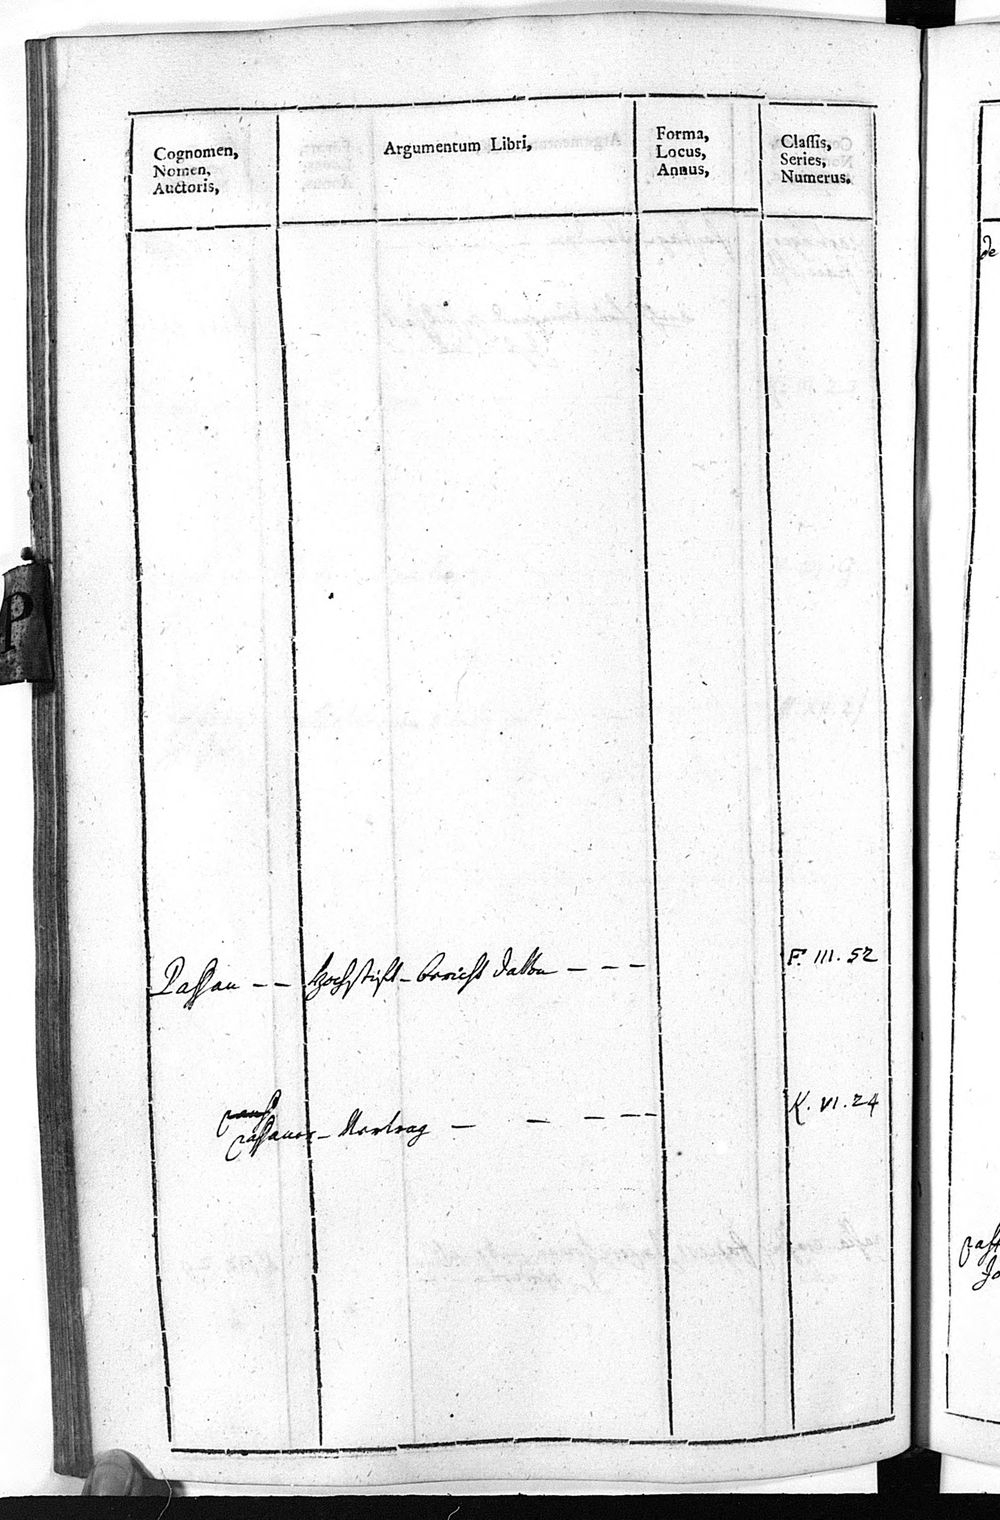 Cognomen,
Nomen,
Auctoris,
Argumentum Libri,
Forma,
Locus,
Annus,
Classis,
Series,
Numerus.
P
Passau - - Hochstift - bericht - - - F. III. 52
Passauer - Vertrag - - - - - K. VI. 24
de